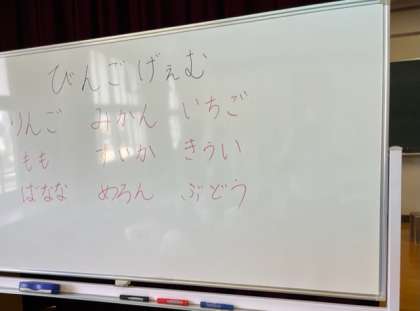 びんごげぇむ
りんご みかん いちご
もも すいか きうい
ばなな めろん ぶどう